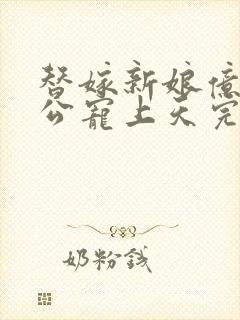 替嫁新娘億
公寵上天完
奶粉錢